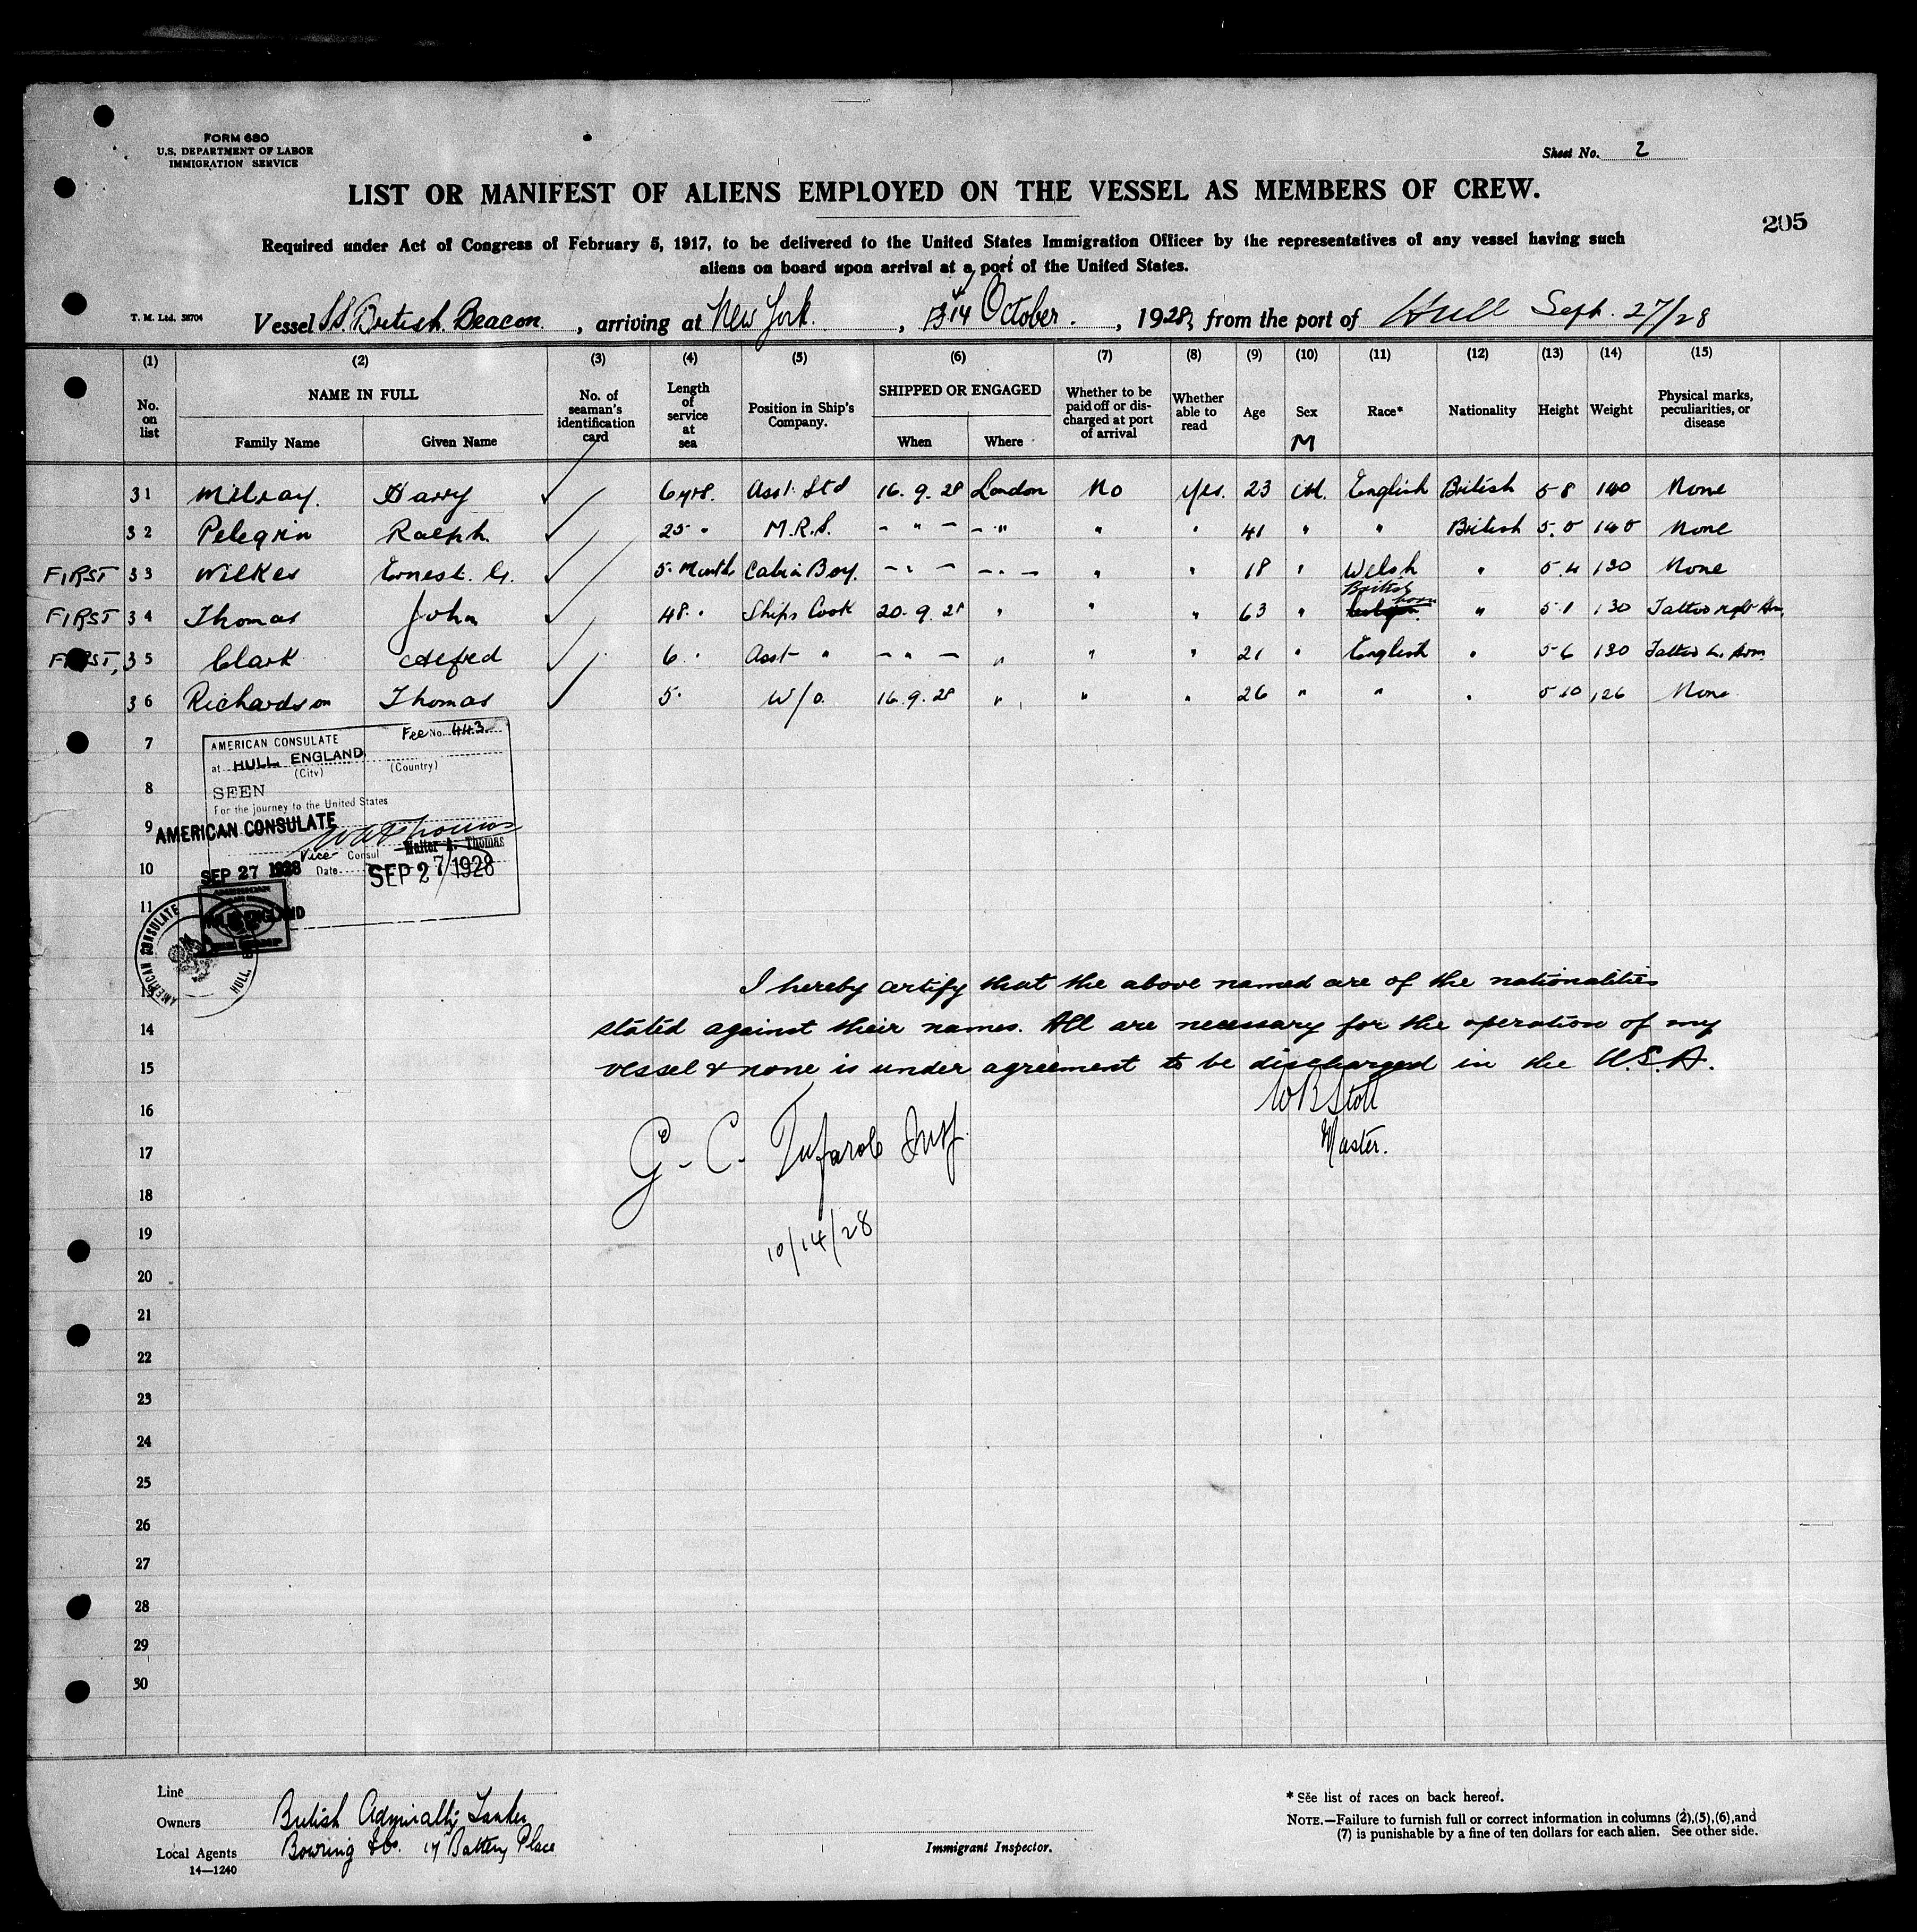 FORM 680
U.S. DEPARTMENT OF LABOR
IMMIGRATION SERVICE
Sheet No. 2
LIST OR MANIFEST OF ALIENS EMPLOYED ON THE VESSEL AS MEMBERS OF CREW.
205
Required under Act of Congress of February 5, 1917, to be delivered to the United States Immigration Officer by the representatives of any vessel having such
aliens on board upon arrival at a port of the United States.
T. M. Ltd. 58704 Vessel SS. British Beacon, arriving at New York, 14 October, 1928, from the port of Hull Sept. 27/28
(1) (2) (3) (4) (5) (6) (7) (8) (9) (10) (11) (12) (13) (14) (15)
No. on list NAME IN FULL Family Name Given Name No. of seaman's identification card Length of service at sea Position in Ship's Company. SHIPPED OR ENGAGED When Where Whether to be paid off or discharged at port of arrival Whether able to read Age Sex M Race* Nationality Height Weight Physical marks, peculiarities, or disease
31 Milray. Harry 6 yrs. Asst. Std 16. 9. 28 London No Yes. 23 M. English British 5 8 140 None
32 Pelegrin Ralph. 25 " M.R.S. - " - - " " " 41 " " British 5. 5 145 None
FIRST 33 Wilkes Ernest. G. 5 Months Cabin Boy. - " - - " - " " 18 " Welsh " 5.4 130 None
FIRST 34 Thomas John 48 " Ships Cook 20. 9. 28 " " " 63 " British born " 5 1 130 Tattoo right Arm,
FIRST, 35 Clark Alfred 6 " Asst " - " - " " " 21 " English " 5 6 130 Tattoo L. Arm
36 Richardson Thomas 5 " W/O. 16. 9. 28 " " " 26 " " " 5 10 126 None
7
AMERICAN CONSULATE Fee No. 443
at HULL, ENGLAND
(City) (Country)
8
SEEN
For the journey to the United States
9 AMERICAN CONSULATE
Vice Consul Walter A. Thomas
10 SEP 27 1928 Date SEP 27 1928
11
AMERICAN CONSULATE HULL, ENGLAND
I hereby certify that the above named are of the nationalities
14 stated against their names. All are necessary for the operation of my
15 vessel & none is under agreement to be discharged in the U.S.A.
16 W B Stott
17 Master.
G. C. Insp.
18
19 10/14/28
20
21
22
23
24
25
26
27
28
29
30
Line
Owners British Admiralty Tanker
Local Agents Bowring & Co. 17 Battery Place
14—1240
Immigrant Inspector.
* See list of races on back hereof.
NOTE.—Failure to furnish full or correct information in columns (2),(5),(6),and
(7) is punishable by a fine of ten dollars for each alien. See other side.